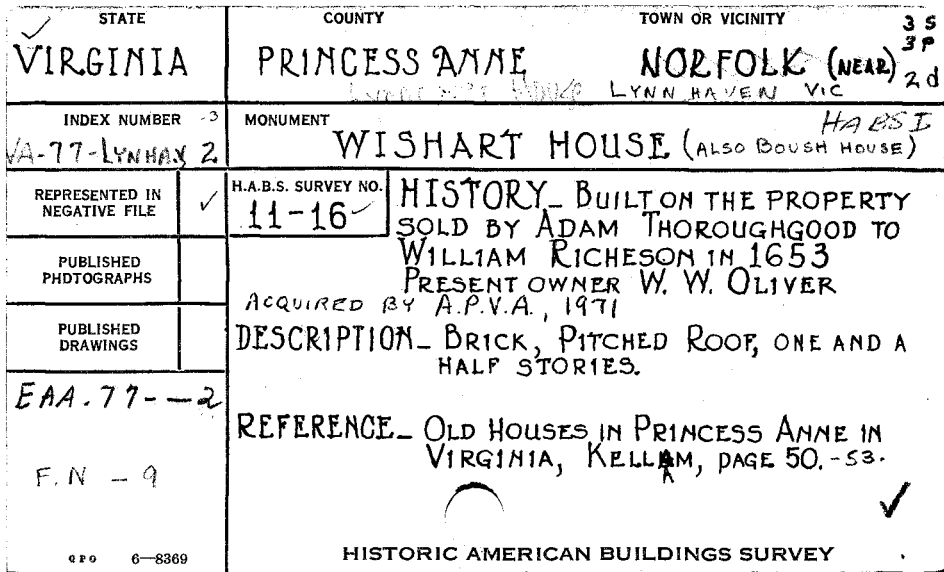 STATE
VIRGINIA
COUNTY
PRINCESS ANNE
TOWN OR VICINITY
NORFOLK (NEAR)
LYNN HAVEN VIC
3 S
3 P
2 d
INDEX NUMBER -3
VA-77-LYNHAV 2
MONUMENT
HABS I
WISHART HOUSE (ALSO BOUSH HOUSE)
REPRESENTED IN
NEGATIVE FILE ✓
PUBLISHED
PHOTOGRAPHS
PUBLISHED
DRAWINGS
H.A.B.S. SURVEY NO.
11-16
HISTORY_ BUILT ON THE PROPERTY
SOLD BY ADAM THOROUGHGOOD TO
WILLIAM RICHESON IN 1653
PRESENT OWNER W. W. OLIVER
ACQUIRED BY A.P.V.A., 1971
DESCRIPTION_ BRICK, PITCHED ROOF, ONE AND A
HALF STORIES.
EAA.77--2
REFERENCE_ OLD HOUSES IN PRINCESS ANNE IN
VIRGINIA, KELLAM, PAGE 50.-53.
F.N - 9
GPO 6-8369
HISTORIC AMERICAN BUILDINGS SURVEY